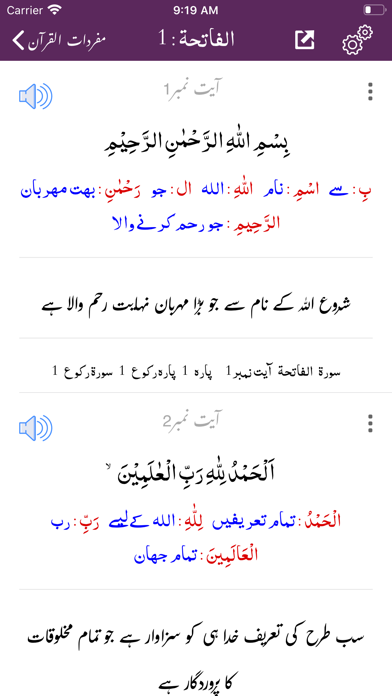 Carrier 9:19 AM
مفردات القرآن الفاتحة: 1
آیت نمبر1
بِسْمِ اللّٰهِ الرَّحْمٰنِ الرَّحِيْمِ
بِ: سے اسْمِ: نام اللّٰهِ: الله ال: جو رَحْمٰنِ: بہت مہربان
الرَّحِيمِ: جو رحم کرنے والا
شروع اللہ کے نام سے جو بڑا مہربان نہایت رحم والا ہے
سورة الفاتحة آیت نمبر1 پارہ 1 پارہ رکوع 1 سورۃ رکوع 1
آیت نمبر2
اَلْحَمْدُ لِلّٰهِ رَبِّ الْعٰلَمِيْنَ ۙ
الْحَمْدُ: تمام تعریفیں لِلّٰهِ: الله کے لیے رَبِّ: رب
الْعَالَمِينَ: تمام جهان
سب طرح کی تعریف خدا ہی کو سزاوار ہے جو تمام مخلوقات
کا پروردگار ہے